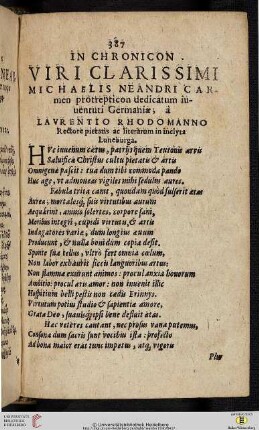 387
IN CHRONICON
VIRI CLARISSIMI
MICHAELIS NEANDRI CAR-
men protrepticon dedicatum iu-
uentuti Germaniæ, à
LAVRENTIO RHODOMANNO
Rectore pietatis ac literarum in inclyta
Luneburga.
HVc iuuenum cœtus, patrijs quem Teutonis aruis
Salutifica Christus cultu pietatis & artis
Omnigena pascit: tua dum tibi commoda pando
Huc age, vt admoneas vigiles mihi sedulus aures.
Fabula trita canit, quondam quod fulserit ætas
Aurea, mortalesq́, suis virtutibus aurum
Aequarint, annis solertes, corpore sani,
Moribus integri, cupidi virtutis, & artis
Indagatores variæ, dum longius æuum
Producunt, & nulla bonis dum copia desit.
Sponte sua tellus, vltrò fert omnia cœlum,
Non labor exhaurit siccis languoribus artus:
Non flamma exurunt animos: procul anxia honorum
Ambitio: procul ars amor: non inuenit illic
Hospitium belli pestis non tædis Erinnys.
Virtutum potius studio & sapientia amore,
Grata Deo, suauisq́ippi bene defluit ætas.
Hæc veteres cantant, nec prorsus vana putemus,
Consona dum sacris sunt vocibus ista: profectò
Ad bona maior erat tunc impetus, atq́, vigoris
Plus
UNIVERSITÄTS-
BIBLIOTHEK
HEIDELBERG
Universitätsbibliothek Heidelberg